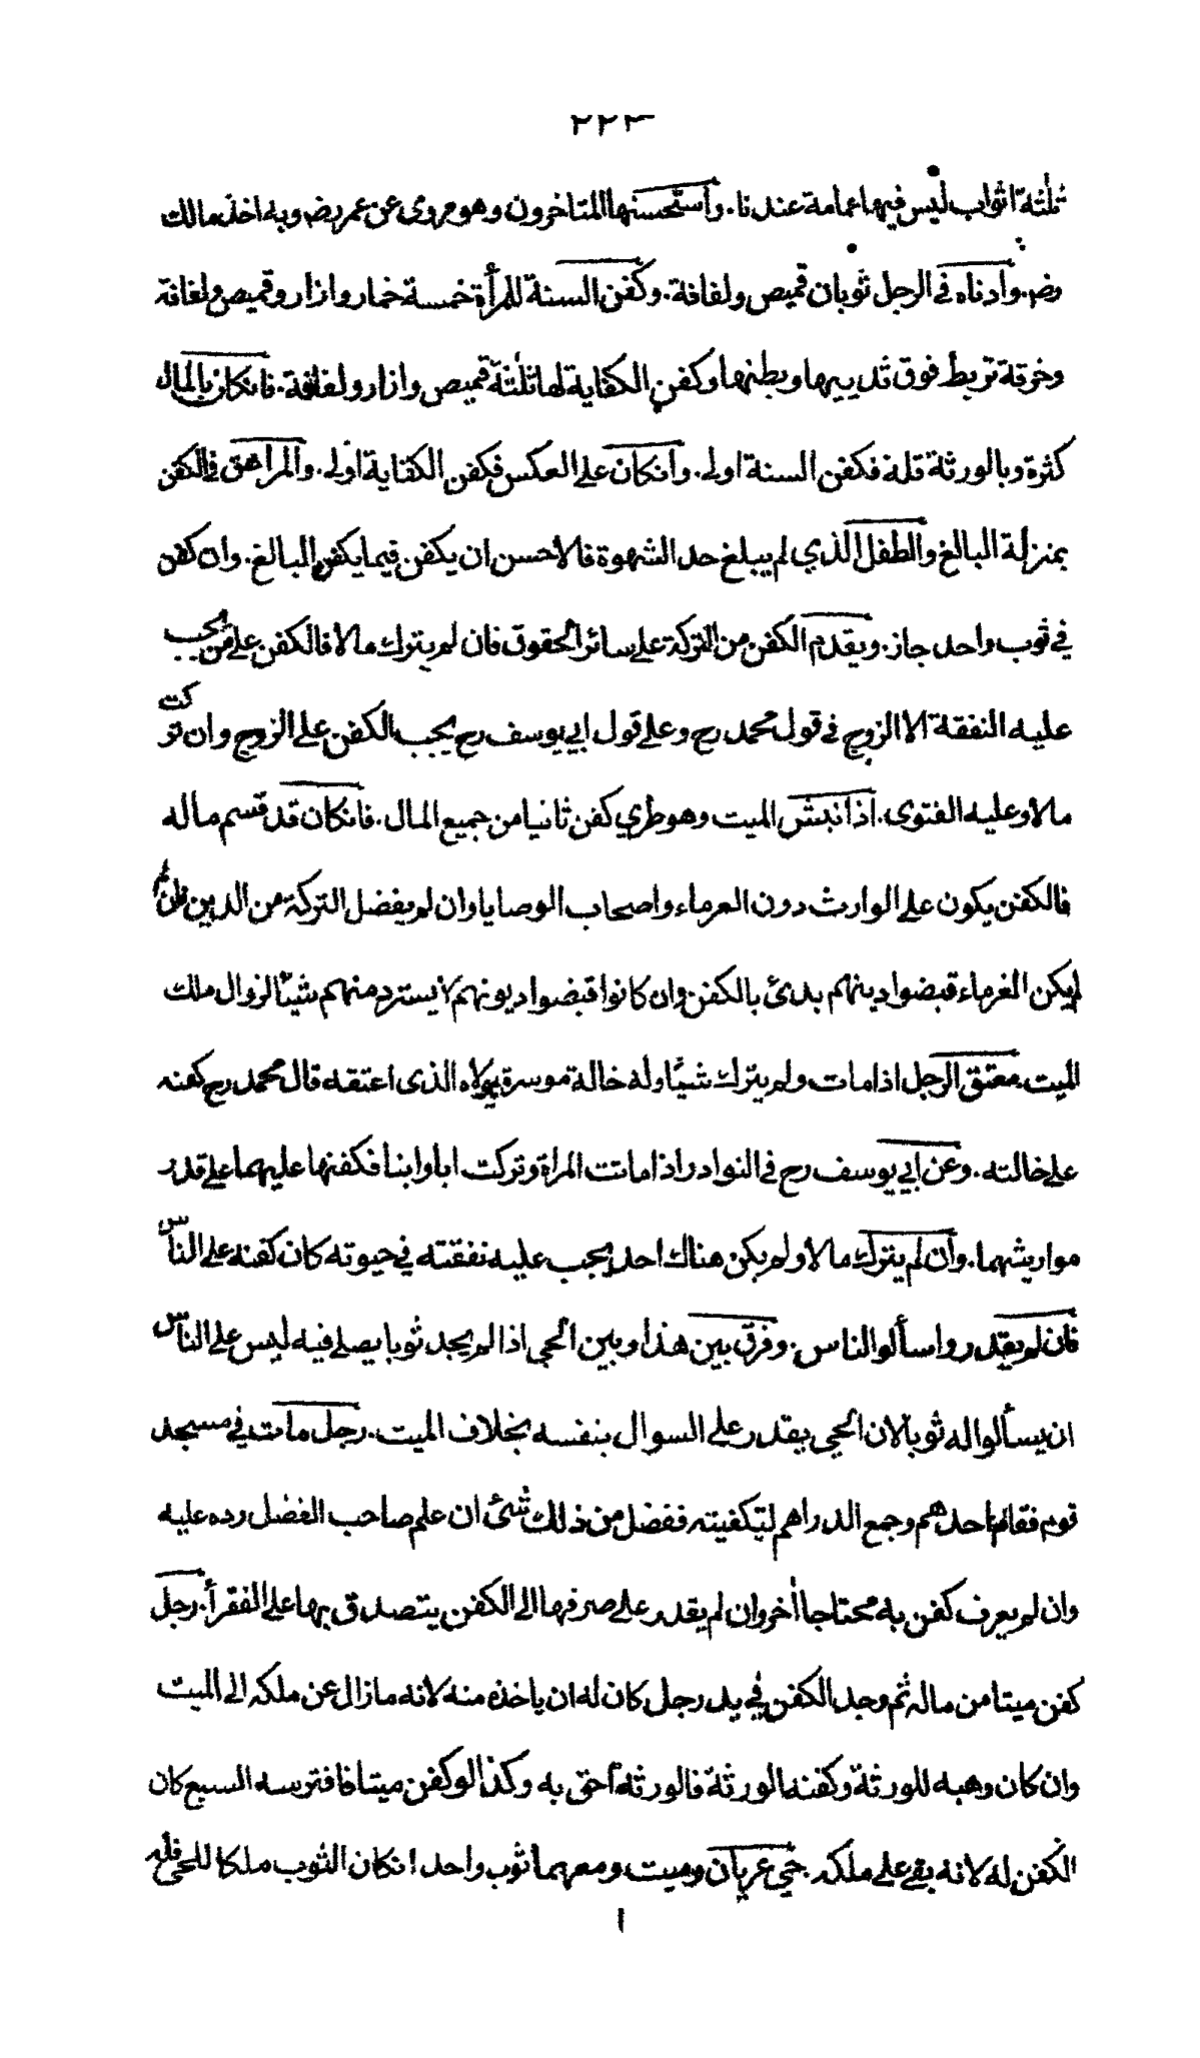 ٢٢٣
ثلثة اثواب ليس فيها عمامة عندنا. واستحسنها المتاخرون وهو مروى عن عمر رضه وبه اخذ مالك
رضه. وادناه فى الرجل ثوبان قميص ولفافة. وكفن السنة للمرأة خمسة خمار وازار وقميص ولفافة
وخرقة تربط فوق ثدييها وبطنها وكفن الكفاية لها ثلثة قميص وازار ولفافة. فانكان بالمال
كثرة وبالورثة قلة فكفن السنة اولى. وانكان على العكس فكفن الكفاية اولى. والمراهق فى الكفن
بمنزلة البالغ والطفل الذي لم يبلغ حد الشهوة فالاحسن ان يكفن فيما يكفن البالغ. وان كفن
في ثوب واحد جاز. ويقدم الكفن من التركة على سائر الحقوق فان لم يترك مالا فالكفن على من يجب
عليه النفقة الا الزوج فى قول محمد رح وعلى قول ابي يوسف رح يجب الكفن على الزوج وان تركت
مالا وعليه الفتوى. اذا نبش الميت وهو طري كفن ثانيا من جميع المال. فانكان قد قسم ماله
فالكفن يكون على الوارث دون الغرماء واصحاب الوصايا وان لم يفضل التركة من الدين فان لم
يكن الغرماء قبضوا دينهم بدئ بالكفن وان كانوا قبضوا ديونهم لا يسترد منهم شيئا لزوال ملك
الميت. معتق الرجل اذا مات ولم يترك شيئا وله خالة موسرة ومولاه الذى اعتقه قال محمد رح كفنه
على خالته. وعن ابي يوسف رح فى النوادر اذا ماتت المراة وتركت ابا وابنا فكفنها عليهما على قدر
مواريثهما. وان لم يترك مالا ولم يكن هناك احد يجب عليه نفقته في حيوته كان كفنه على الناس
فان لم يقدروا سألوا الناس. وفرق بين هذا وبين الحي اذا لم يجد ثوبا يصلى فيه ليس على الناس
ان يسألوا له ثوبا لان الحي يقدر على السوال بنفسه بخلاف الميت. رجل مات في مسجد
قوم فقام احدهم وجمع الدراهم لتكفينه ففضل من ذلك شئ ان علم صاحب الفضل رده عليه
وان لم يعرف كفن به محتاجا اخر وان لم يقدر على صرفها الى الكفن يتصدق بها على الفقرأ. رجل
كفن ميتا من ماله ثم وجد الكفن في يد رجل كان له ان ياخذه منه لانه ما زال عن ملكه الى الميت
وان كان وهبه للورثة وكفنه الورثة فالورثة احق به وكذا لو كفن ميتا فافترسه السبع كان
الكفن له لانه بقى على ملكه. حي عريان وميت ومعهما ثوب واحد انكان الثوب ملكا للحى فله
ا